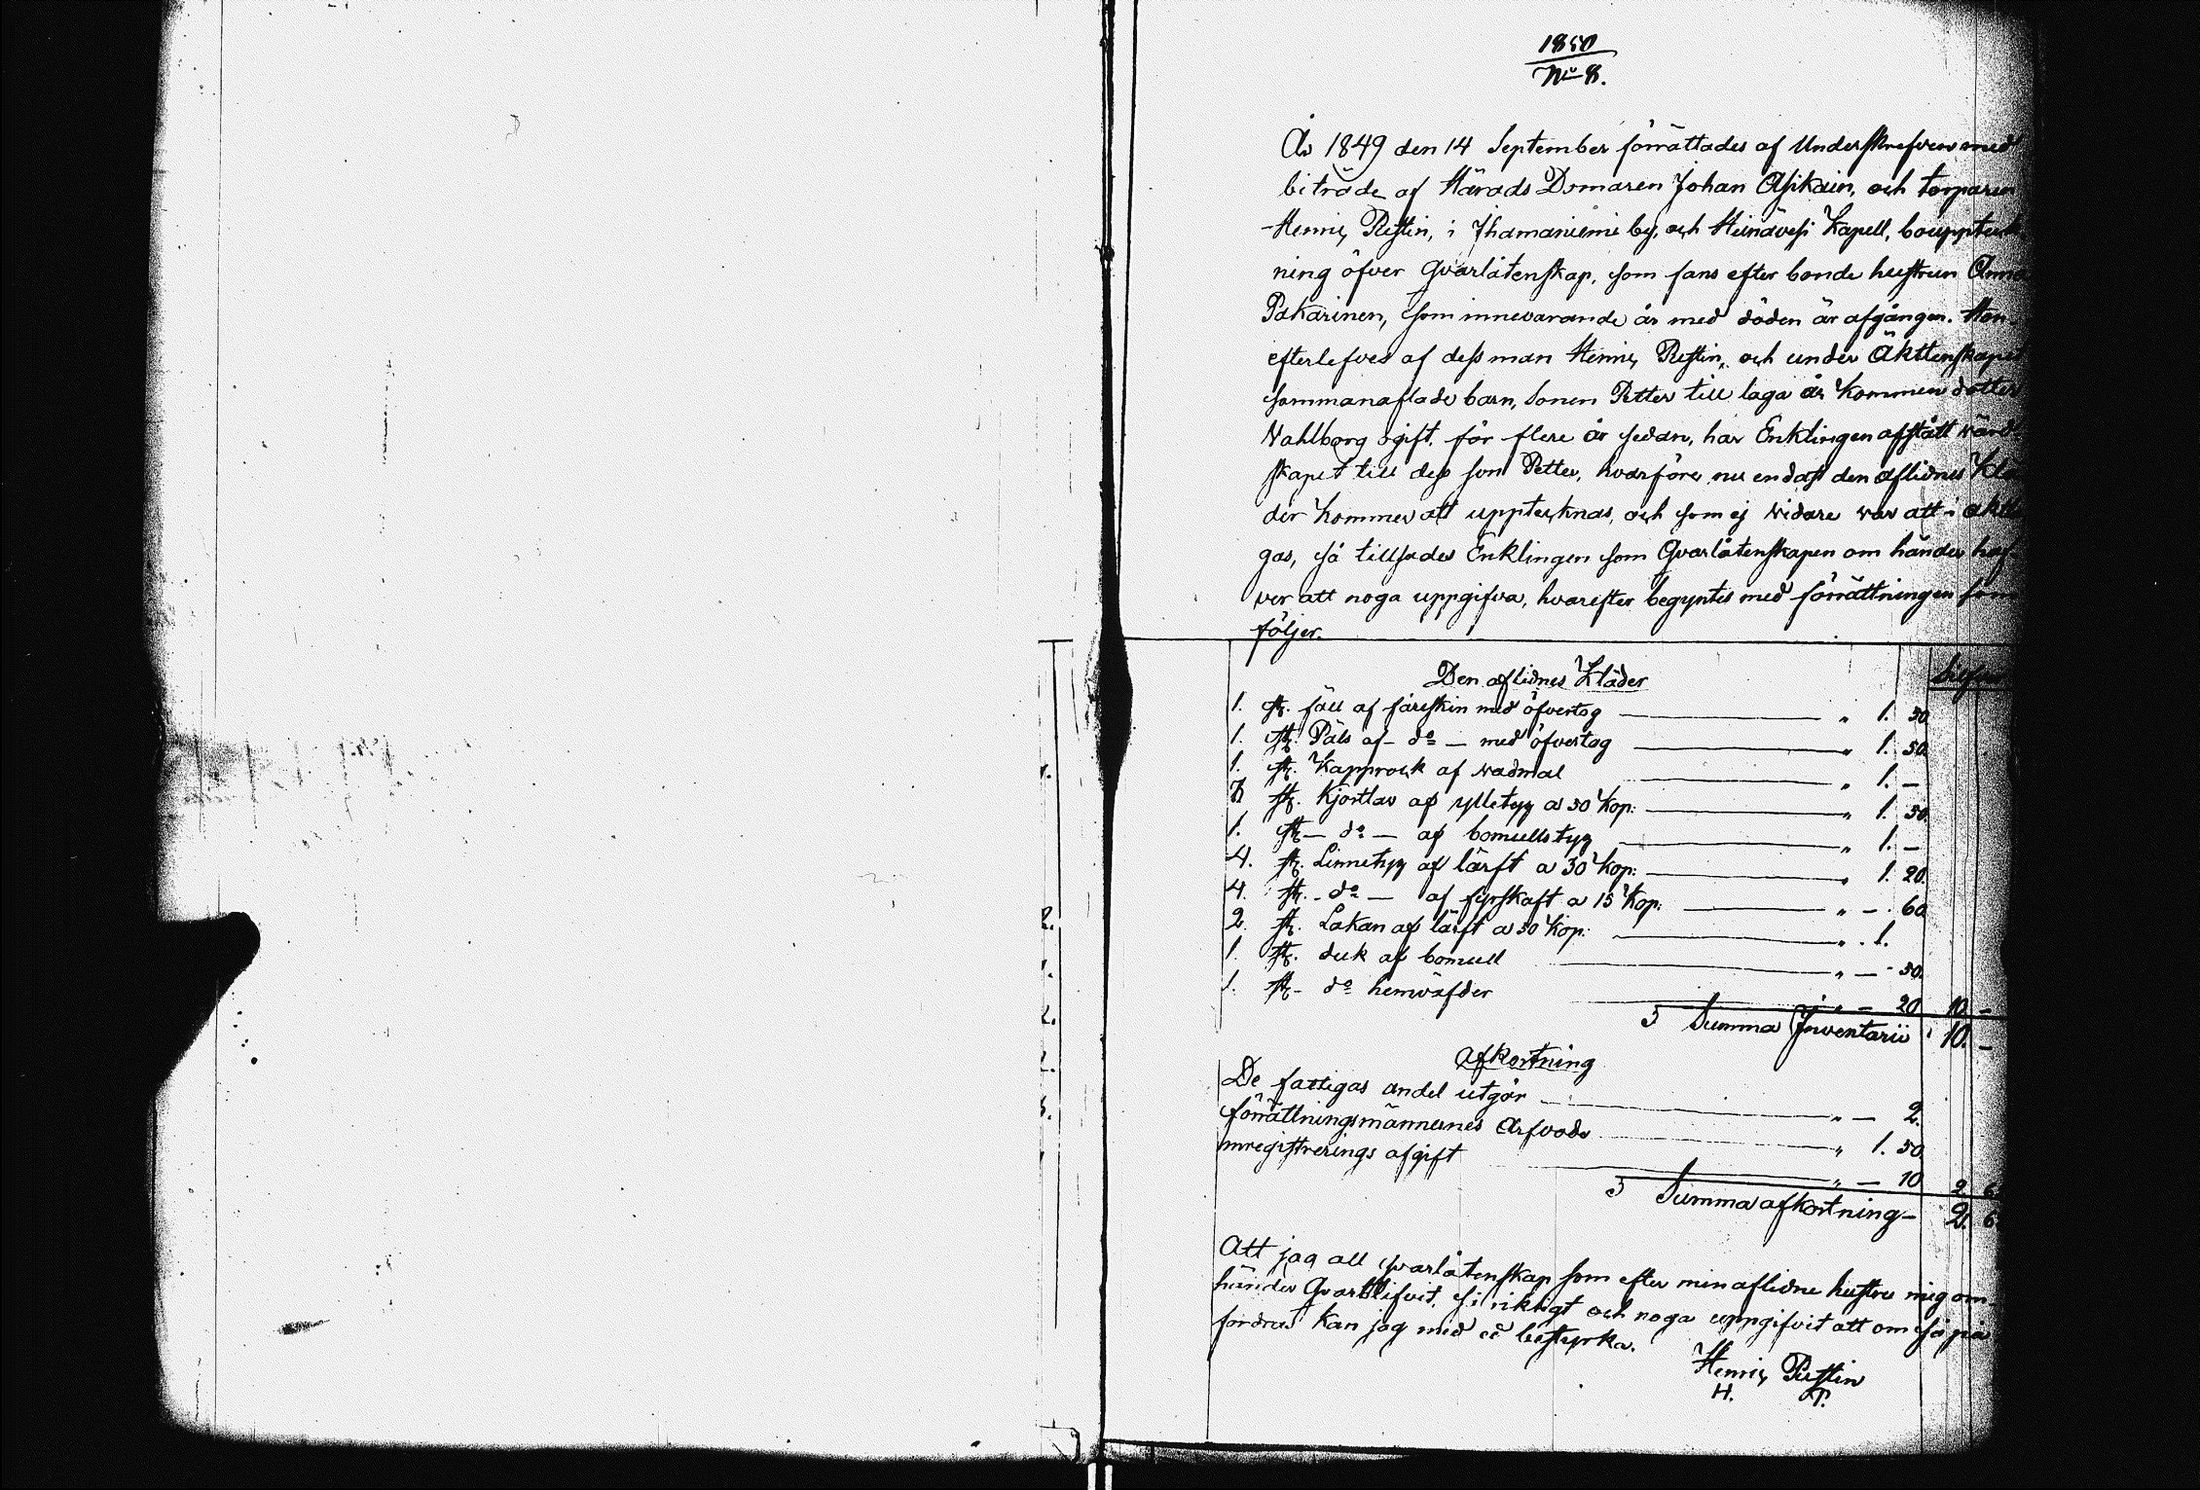 1850
No 8.
År 1849 den 14 September förrättades af Underskrefven med
biträde af Härads Domaren Johan Asikain, och torparen
Henric Pistin, i Ihamaniemi by, och Heinävesi Kapell, bouppteck-
ning öfver Qvarlåtenskap, som fans efter bonde hustrun Anna
Pakarinen, som innevarande år med döden är afgången. Hon
efterlefves af dess man Henric Pistin, och under Äktenskapet
sammanaflade barn, Sonen Petter till laga år kommen dotter
Wahlborg ogift. för flere år sedan, har Enklingen afstått värd-
skapet till dess son Petter, hvarföre nu endast den aflidnes Klä
der kommer att upptecknas, och som ej vidare var att i akt
gas, så tillsades Enklingen som Qvarlåtenskapen om händer haf-
ver att noga uppgifva, hvarefter begyntes med förrättningen som
följer.
Den aflidnes Kläder
1. st. fäll af fårskin med öfvertog " 1. 50
1. st. Päls af - do - med öfvertog " 1. 50.
1. st. Kapprock af vadmal " 1. —
3 st. Kjortlar af ylletyg a 50 Kop: " 1. 50.
1. st - do - af bomullstyg " 1. —
4. st. Linnetyg af lärft a 30 Kop: " 1. 20.
4. st. - do - af fyrskaft a 15 Kop: " — 60
2. st. Lakan af lärft a 50 Kop: " 1.
1. st. duk af bomull " — 50.
1. st - do hemväfder " — 20 10. —
Summa Inventarii 10. —
Afkortning
De fattigas andel utgör " — 2.
förrättningsmännernes Arfvode " 1. 50.
inregistrerings afgift " — 10 2. 6
Summa afkortning — 2. 6
Att jag all qvarlåtenskap som efter min aflidne hustru mig om
händer Qvarblifvit, så riktigt och noga uppgifvit att om så på
fordras kan jag med ed bestyrka.
Henric Pistin
H. P.